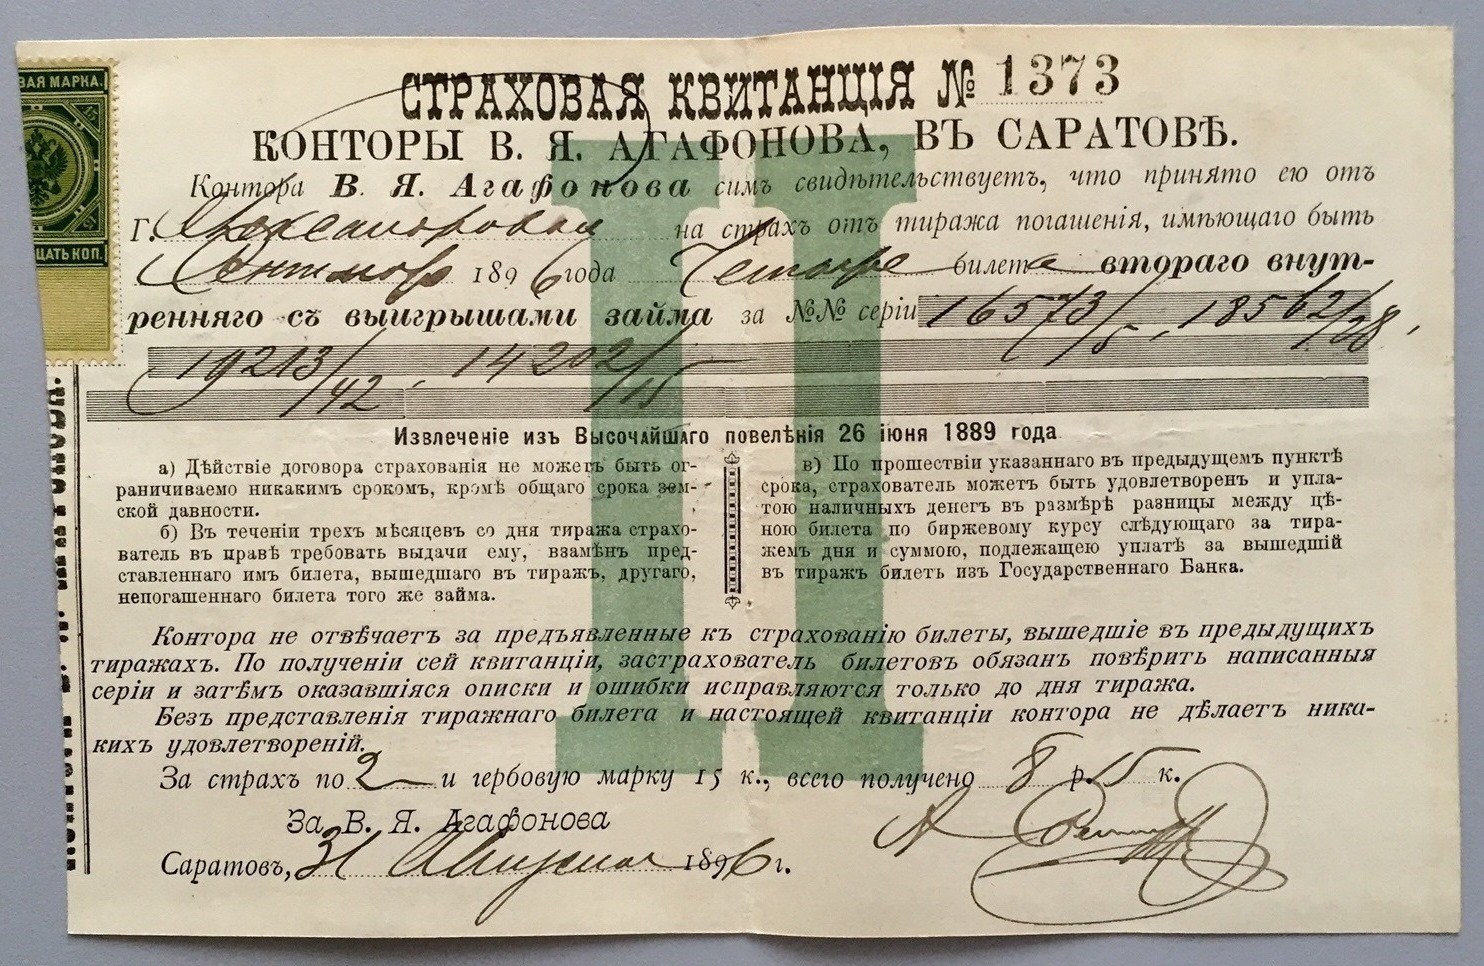 ВАЯ МАРКА.
15
15
ЦАТЬ КОП.
СТРАХОВАЯ КВИТАНЦІЯ № 1373
КОНТОРЫ В. Я. АГАФОНОВА, ВЪ САРАТОВѢ.
Контора В. Я. Агафонова симъ свидѣтельствуетъ, что принято ею отъ
Г. на страхъ отъ тиража погашенія, имѣющаго быть
1896 года Четыре билета втораго внут-
ренняго съ выигрышами займа за №№ серіи 16573/5, 18562/28,
19213/42, 14202/15
Извлеченіе изъ Высочайшаго повелѣнія 26 іюня 1889 года
а) Дѣйствіе договора страхованія не можетъ быть ог-
раничиваемо никакимъ срокомъ, кромѣ общаго срока зем-
ской давности.
б) Въ теченіи трехъ мѣсяцевъ со дня тиража страхо-
ватель въ правѣ требовать выдачи ему, взамѣнъ пред-
ставленнаго имъ билета, вышедшаго въ тиражъ, другаго,
непогашеннаго билета того же займа.
в) По прошествіи указаннаго въ предыдущемъ пунктѣ
срока, страхователь можетъ быть удовлетворенъ и упла-
тою наличныхъ денегъ въ размѣрѣ разницы между цѣ-
ною билета по биржевому курсу слѣдующаго за тира-
жемъ дня и суммою, подлежащею уплатѣ за вышедшій
въ тиражъ билетъ изъ Государственнаго Банка.
Контора не отвѣчаетъ за предъявленные къ страхованію билеты, вышедшіе въ предыдущихъ
тиражахъ. По полученіи сей квитанціи, застрахователь билетовъ обязанъ повѣрить написанныя
серіи и затѣмъ оказавшіяся описки и ошибки исправляются только до дня тиража.
Безъ представленія тиражнаго билета и настоящей квитанціи контора не дѣлаетъ ника-
кихъ удовлетвореній.
За страхъ по 2 и гербовую марку 15 к., всего получено 8 р. 15 к.
За В. Я. Агафонова
Саратовъ, 31 Августа 1896 г.
II